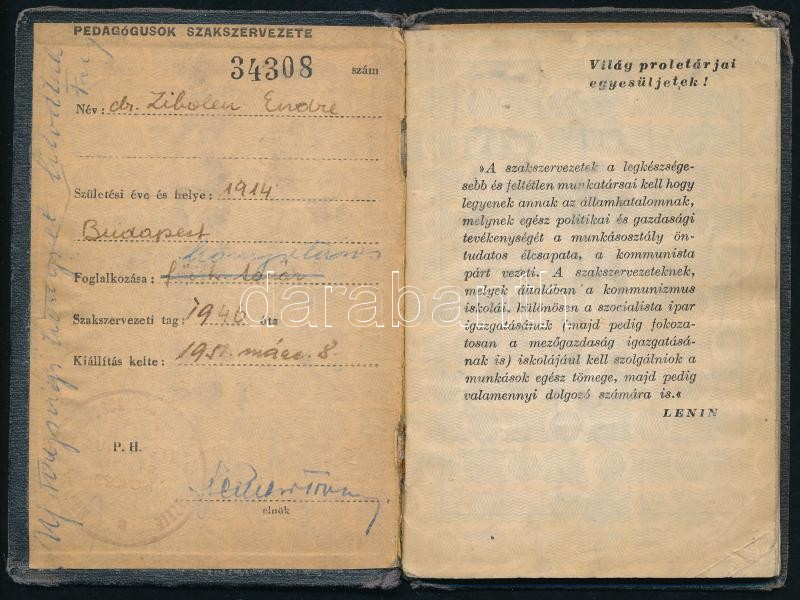 PEDAGÓGUSOK SZAKSZERVEZETE
34308 szám
Név: dr. Zibolen Endre
Születési éve és helye: 1914
Budapest
könyvtáros
Foglalkozása:
Szakszervezeti tag: 1946 óta
Kiállítás kelte: 1951. márc. 8.
P. H.
elnök
Uj tagsági
Világ proletárjai
egyesüljetek!
»A szakszervezetek a legkészsége-
sebb és feltétlen munkatársai kell hogy
legyenek annak az államhatalomnak,
melynek egész politikai és gazdasági
tevékenységét a munkásosztály ön-
tudatos élcsapata, a kommunista
párt vezeti. A szakszervezeteknek,
melyek általában a kommunizmus
iskolái, különösen a szocialista ipar
igazgatásának (majd pedig fokoza-
tosan a mezőgazdaság igazgatásá-
nak is) iskolájául kell szolgálniok a
munkások egész tömege, majd pedig
valamennyi dolgozó számára is.«
LENIN
darabanth